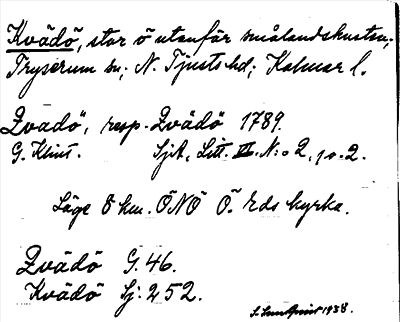 Kvädö, stor ö utanför smålandskusten;
Tryserum sn; N. Tjusts hd; Kalmar l.
Qvädö, resp. Qvädö 1789.
G. Klint. Sjk, Litt. III. N:o 2, 1 o. 2.
Läge 8 km. ÖNÖ Ö. Eds kyrka.
Qvädö G. 46.
Kvädö Sj. 252.
1938.